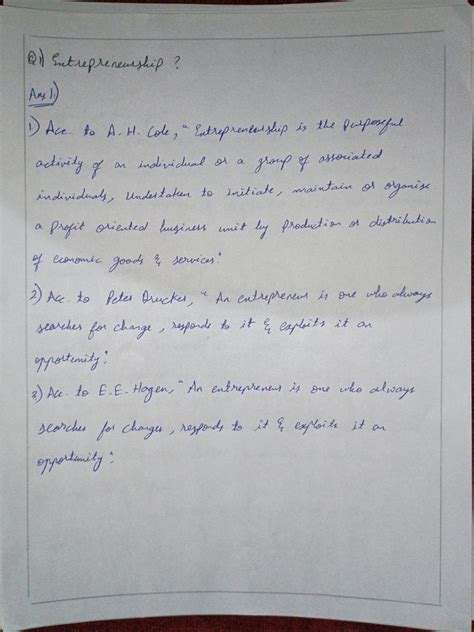 Q1) Entrepreneurship ?
Ans 1)
1) Acc. to A.H. Cole, "Entrepreneurship is the purposeful
activity of an individual or a group of associated
individuals, undertaken to initiate, maintain or organise
a profit oriented business unit by production or distribution
of economic goods & services."
2) Acc. to Peter Drucker, "An entrepreneur is one who always
searches for change, responds to it & exploits it an
opportunity."
3) Acc. to E.E. Hagen, "An entrepreneur is one who always
searches for changes, responds to it & exploits it an
opportunity."